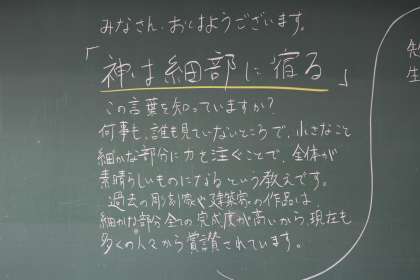 みなさん、おはようございます。
「神は細部に宿る」
この言葉を知っていますか?
何事も、誰も見ていないところで、小さなこと
細かな部分に力を注ぐことで、全体が
素晴らしいものになるという教えです。
過去の彫刻家や建築家の作品は、
細かな部分全ての完成度が高いから、現在も
多くの人々から賞讃されています。
先
生